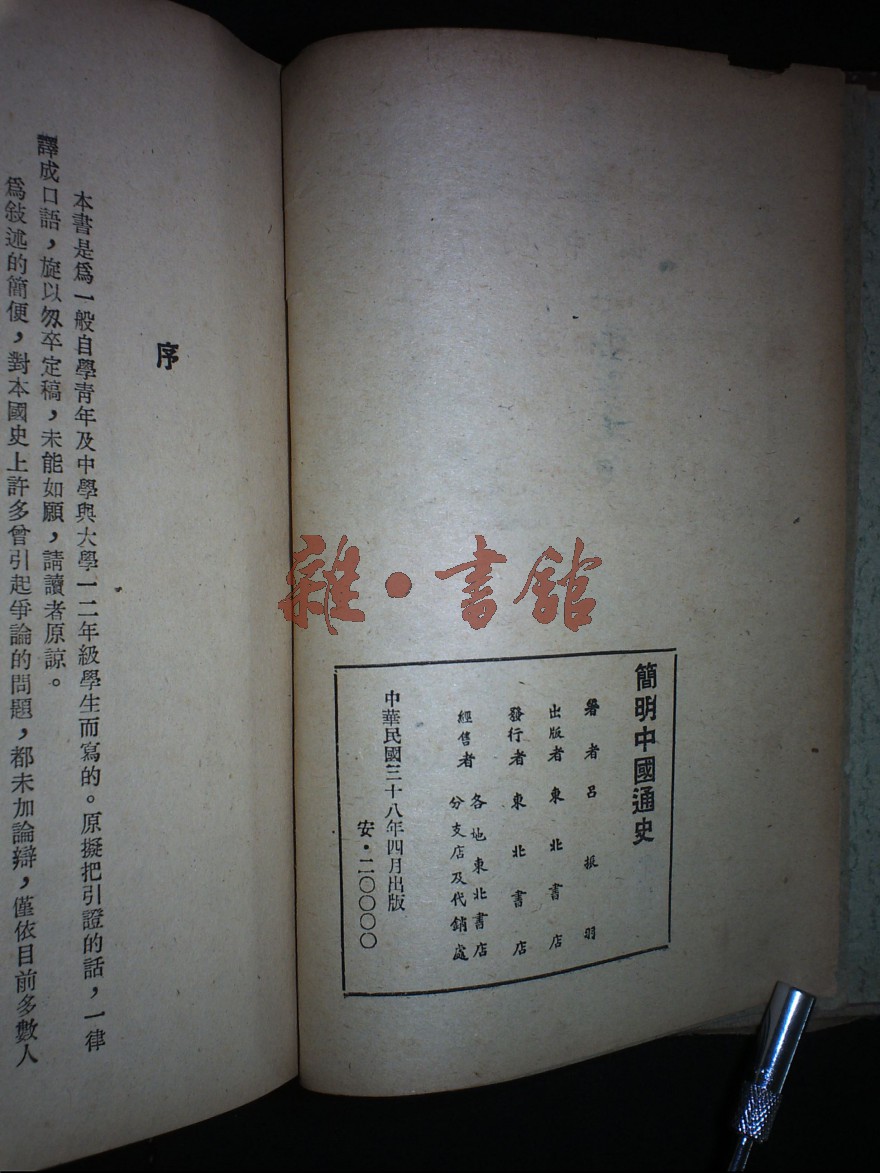 簡明中國通史
著者 呂振羽
出版者 東北書店
發行者 東北書店
經售者 各地東北書店
分支店及代銷處
中華民國三十八年四月出版
安·二〇〇〇〇
序
本書是爲一般自學青年及中學與大學一二年級學生而寫的。原擬把引證的話，一律
譯成口語，旋以匆卒定稿，未能如願，請讀者原諒。
爲敍述的簡便，對本國史上許多曾引起爭論的問題，都未加論辯，僅依目前多數人
雜·書館